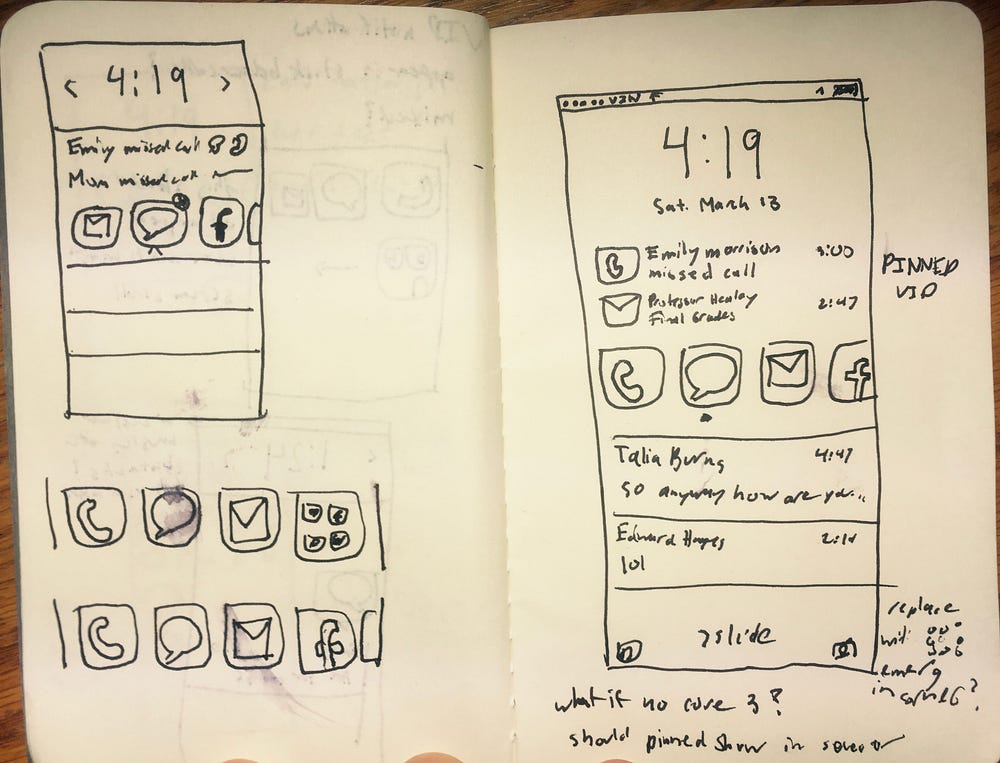 < 4:19 >
Emily missed call
Mom missed call
f
4:19
Sat. March 13
Emily morrison 9:00
missed call
Professor Henley 2:47
Final Grades
f
PINNED
VIP
Talia Burns 4:47
so anyway how are you...
Edward Hayes 2:14
lol
>slide
replace
with
emerg
in corner?
what if no core 3?
should pinned show in